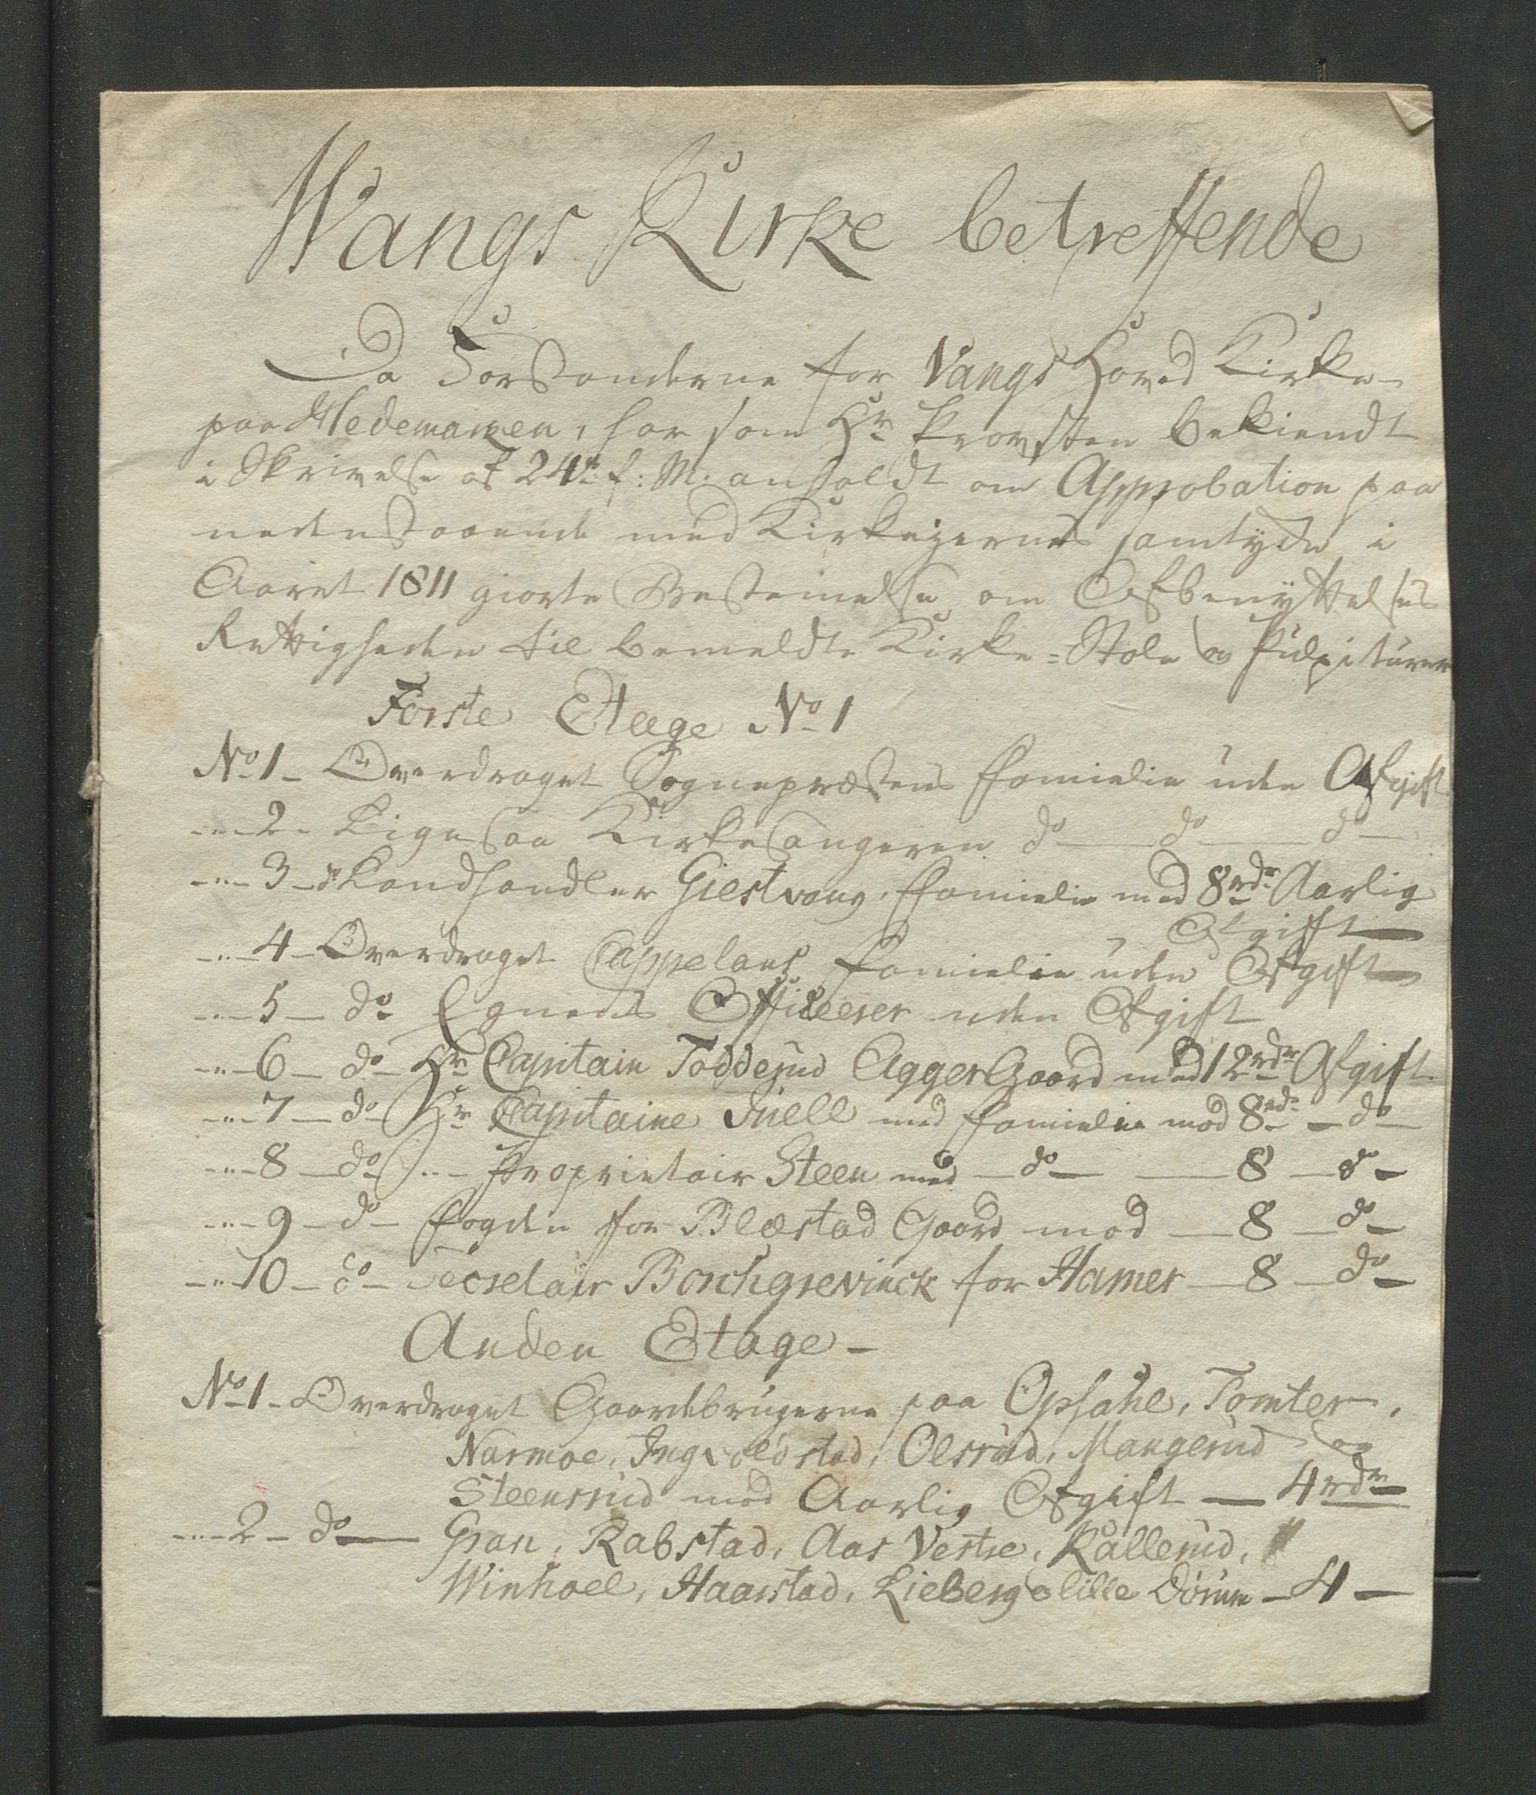 Wangs Kirke betreffende
Da Forstanderne for Vangs Hoved Kirke
paa Hedemarken, har som Hr Provsten bekiendt
i Skrivelse af 24de f: M: anholdt om Approbation paa
nedenstaaende med Kirkeeiernes samtykke i
Aaret 1811 giorte Bestemelse om Afbenyttelses
Rettigheden til bemeldte Kirke=Stole og Pulpiturer
Første Etage No 1
No 1 - Overdraget Sognepræstens Familie uden Afgift
-"- 2 - Ligesaa Kirkesangeren do — do — do —
-"- 3 - Landhandler Giestvang Familie med 8 rdr Aarlig
Afgift —
-"- 4 - Overdraget Cappelans Familie uden Afgift —
-"- 5 - do Egnens Officerer uden Afgift
-"- 6 - do - Hr Capitain Toddejud Agger Gaard med 12 rdr Afgift
-"- 7 - do Hr Capitaine Juell med Familie mod 8 rdr - do -
-"- 8 - do -"- Proprietair Steen med - do - — 8 - do -
-"- 9 - do - Fogden for Blæstad Gaard mod — 8 - do -
-"- 10 - do - Secretair Borchgrevinck for Hamer - 8 - do -
Anden Etage -
No 1 - Overdraget Gaardebrugerne paa Opsahl, Tomter,
Narmoe, Ingvoldstad, Olsrud, Mangerud og
Steensrud mod Aarlig Afgift — 4 rdr
-"- 2 - do — Gran, Rabstad, Aas Vestre, Kallerud,
Winhoel, Haarstad, Lieberg & lille Dørum - 4 -